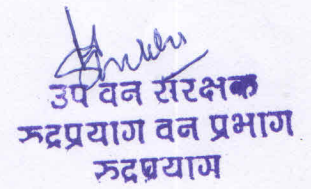 उप वन संरक्षक
रुद्रप्रयाग वन प्रभाग
रुद्रप्रयाग